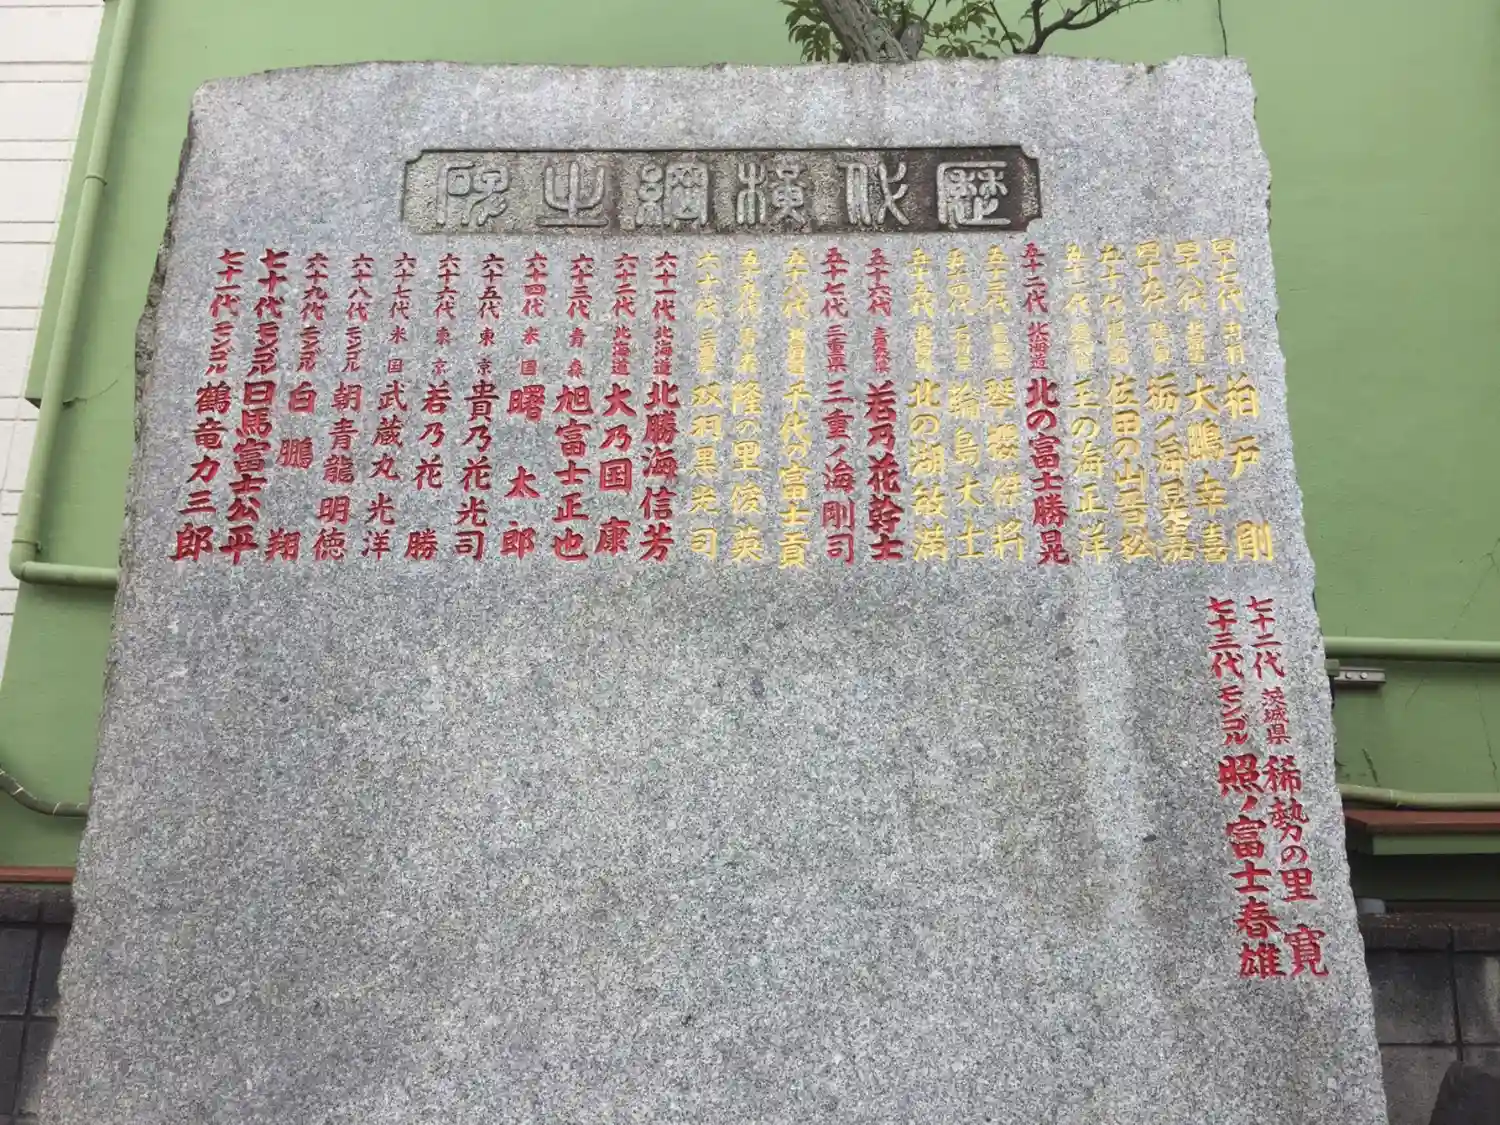 歴代横綱之碑
四十七代 山形 柏戸剛
四十八代 北海道 大鵬幸喜
四十九代 栃ノ海晃嘉
五十代 佐田の山晋松
五十一代 玉の海正洋
五十二代 北海道 北の富士勝晃
五十三代 琴櫻傑將
五十四代 石川県 輪島大士
五十五代 北海道 北の湖敏満
五十六代 青森県 若乃花幹士
五十七代 三重県 三重ノ海剛司
五十八代 北海道 千代の富士貢
五十九代 青森 隆の里俊英
六十代 三重県 双羽黒光司
六十一代 北海道 北勝海信芳
六十二代 北海道 大乃国康
六十三代 青森 旭富士正也
六十四代 米国 曙太郎
六十五代 東京 貴乃花光司
六十六代 東京 若乃花勝
六十七代 米国 武蔵丸光洋
六十八代 モンゴル 朝青龍明徳
六十九代 モンゴル 白鵬翔
七十代 モンゴル 日馬富士公平
七十一代 モンゴル 鶴竜力三郎
七十二代 茨城県 稀勢の里寛
七十三代 モンゴル 照ノ富士春雄